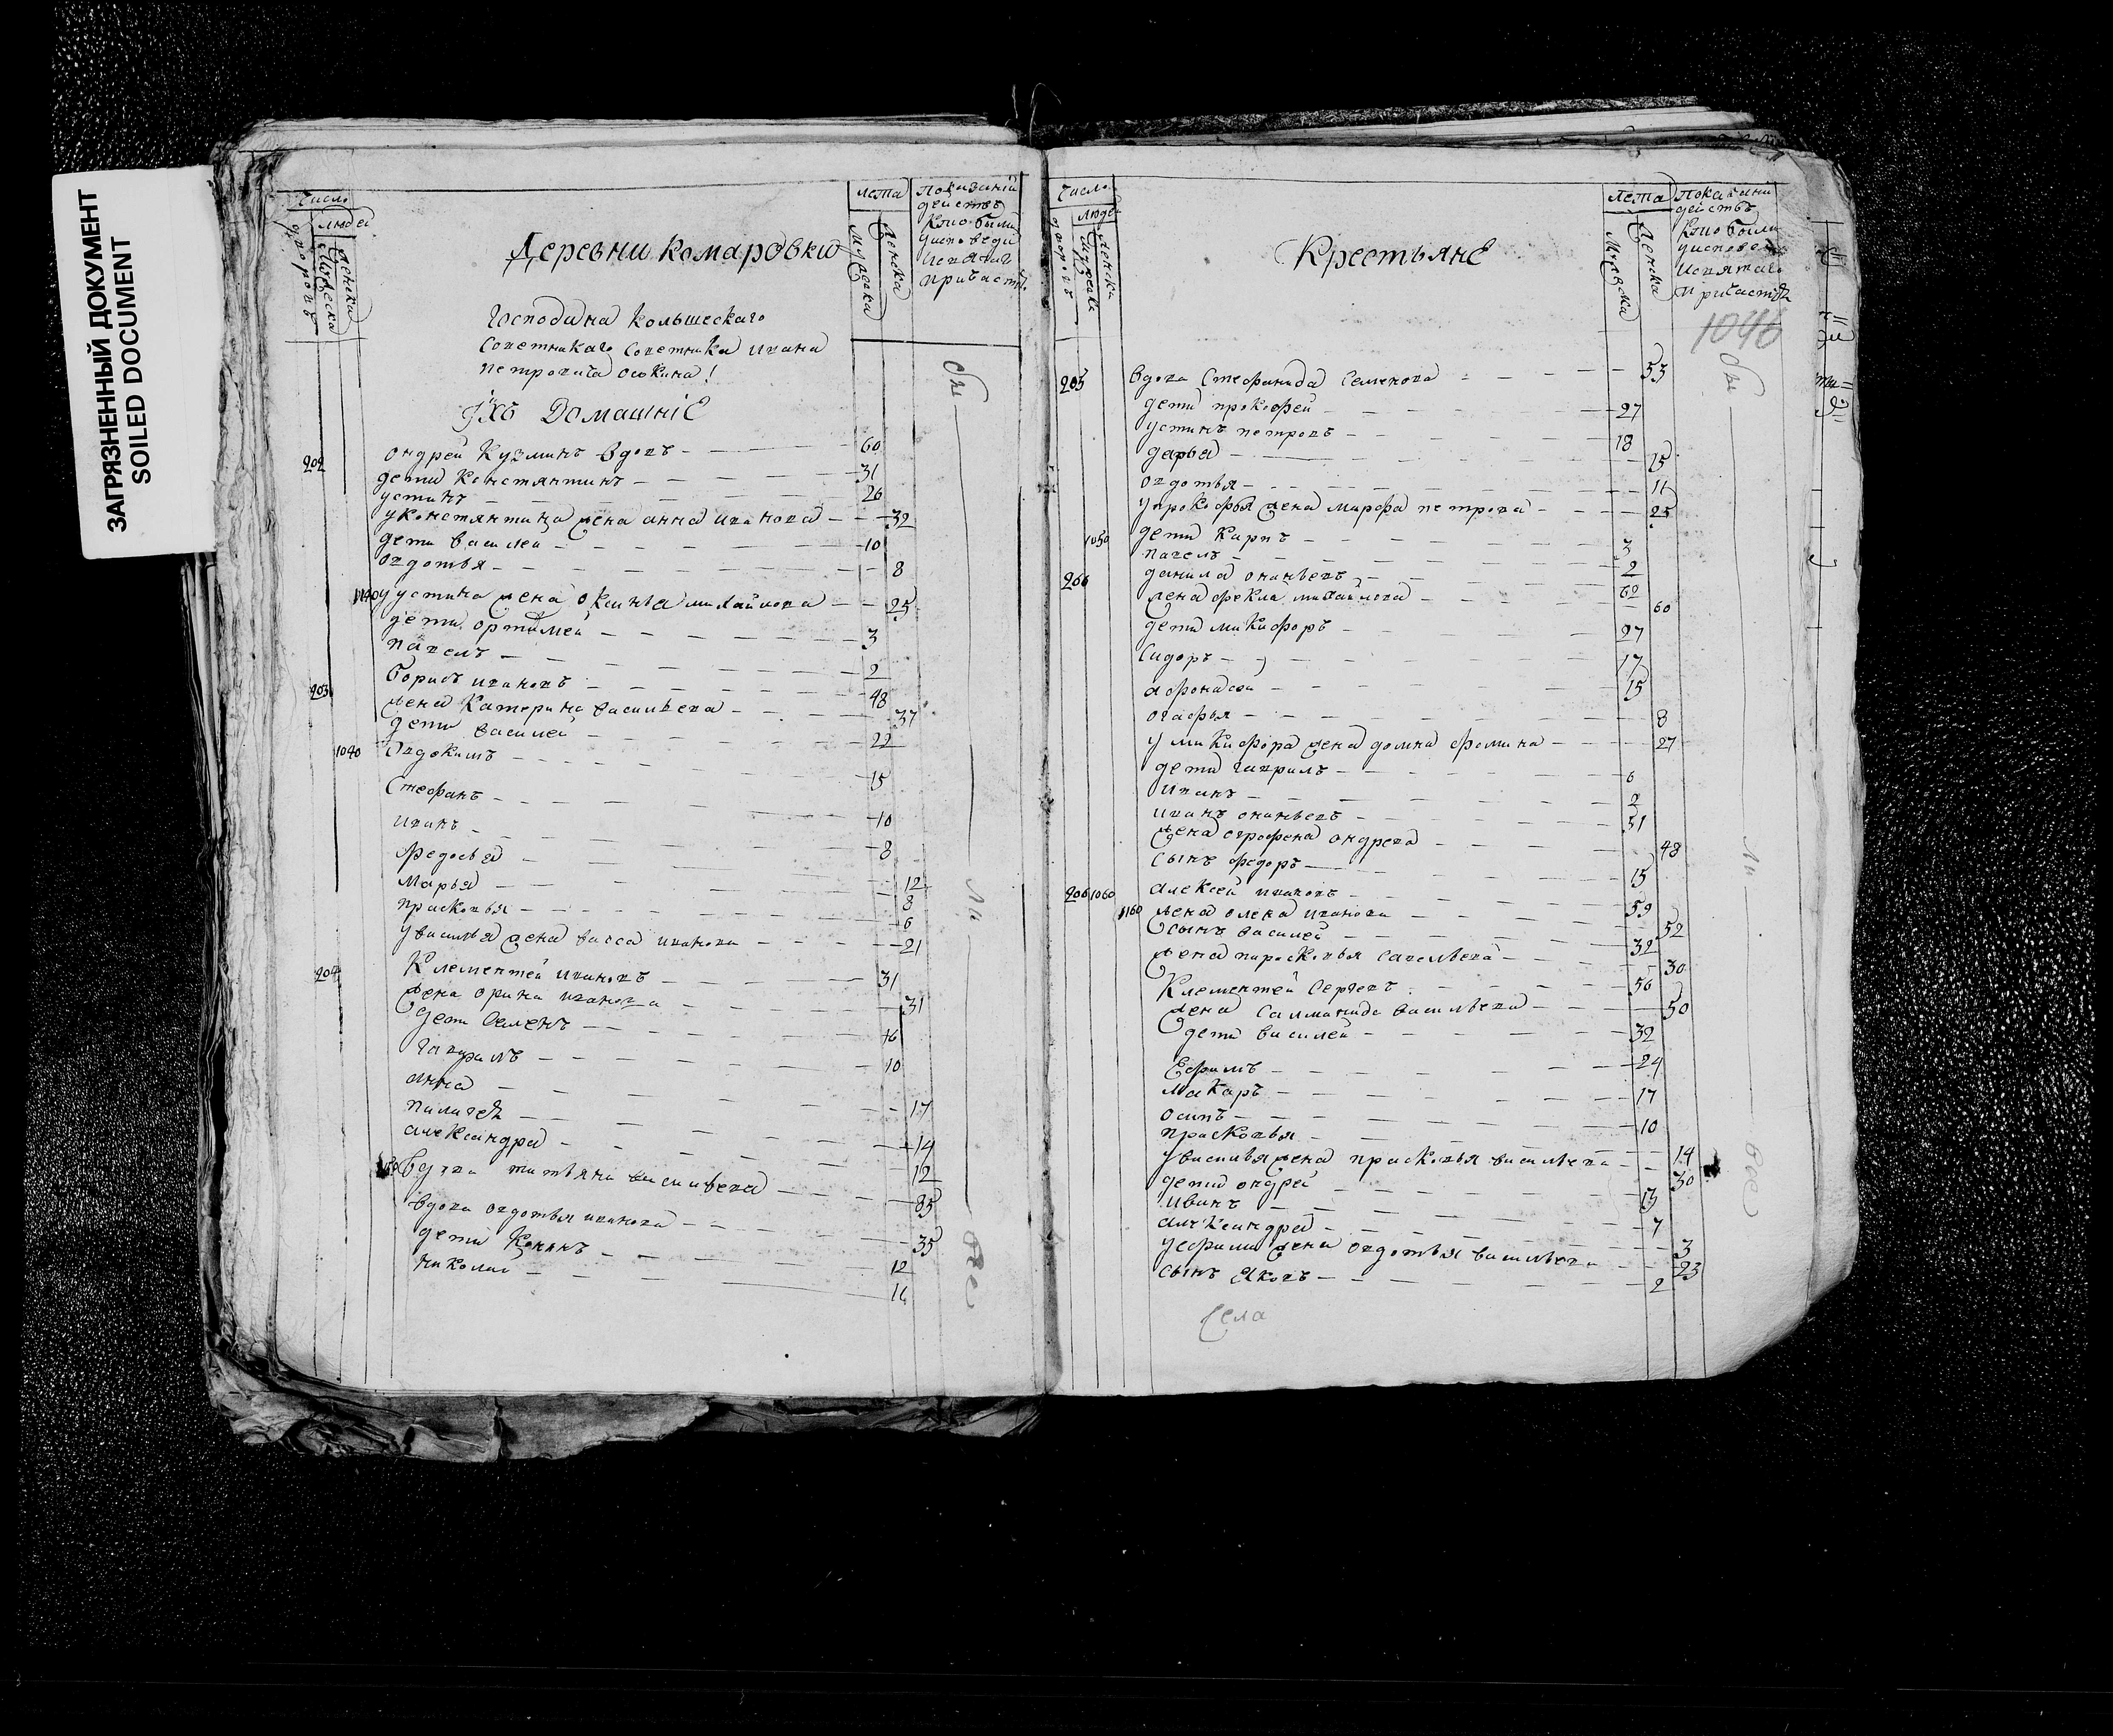 ЗАГРЯЗНЕННЫЙ ДОКУМЕНТ
SOILED DOCUMENT
Число
людей
дворовъ
мужеска
женска
Деревни комаровки
лета
мужеска
женска
показаний
действъ
кто были
уисповеди
исвятаго
причастия
господина кольшескаго
советникаго советника ивана
петровича осокина!
ихъ домашніе
202 ондрей кузминъ вдовъ 60
дети констянтинъ 31
устинъ 26
уконстянтина жена анна иванова 32
дети василей 10
овдотья 8
1140 уустина жена оксинья михайлова 25
дети ортемей 3
павелъ 2
203 борисъ ивановъ 48
жена катерина васильева 37
дети василей 22
1040 овдокимъ 15
стефанъ 10
иванъ 8
федосья 12
марья 8
прасковья 6
увасилья жена васса иванова 21
204 клементей ивановъ 31
жена орина иванова 31
дети семенъ 16
гаврилъ 10
анна 17
пилагея 14
александра 12
вдова татьяна васильева 85
вдова овдотья иванова 35
дети кононъ 12
николай
бы
ли
все
Число
людей
дворовъ
мужеска
женска
Крестьяне
лета
мужеска
женска
показани
действъ
кто были
уисповеди
исвятаго
причастия
1046
205 вдова стефанида семенова 53
дети прокофей 27
устинъ петровъ 18
дарья 15
овдотья 11
упрокофья жена марфа петрова 25
1050 дети карпъ 3
павелъ 2
данила онаньевъ 62
жена фекла михайлова 60
дети микифоръ 27
сидоръ 17
афонасей 15
огафья 8
у микифора жена домна фомина 27
дети гаврилъ 6
иванъ 2
иванъ онаньевъ 51
жена огрофена ондрева 48
сынъ федоръ 15
206 1060 алексей ивановъ 59
1160 жена олена иванова 52
сынъ василей 32
жена парасковья савельева 30
клементей сергевъ 56
жена саламанида васильева 50
дети василей 32
ефимъ 24
макаръ 17
осипъ 10
прасковья 14
увасилья жена прасковья васильева 30
дети ондрей 13
иванъ 7
александра 3
уефима жена овдотья васильева 23
сынъ яковъ 2
бы
ли
все
села